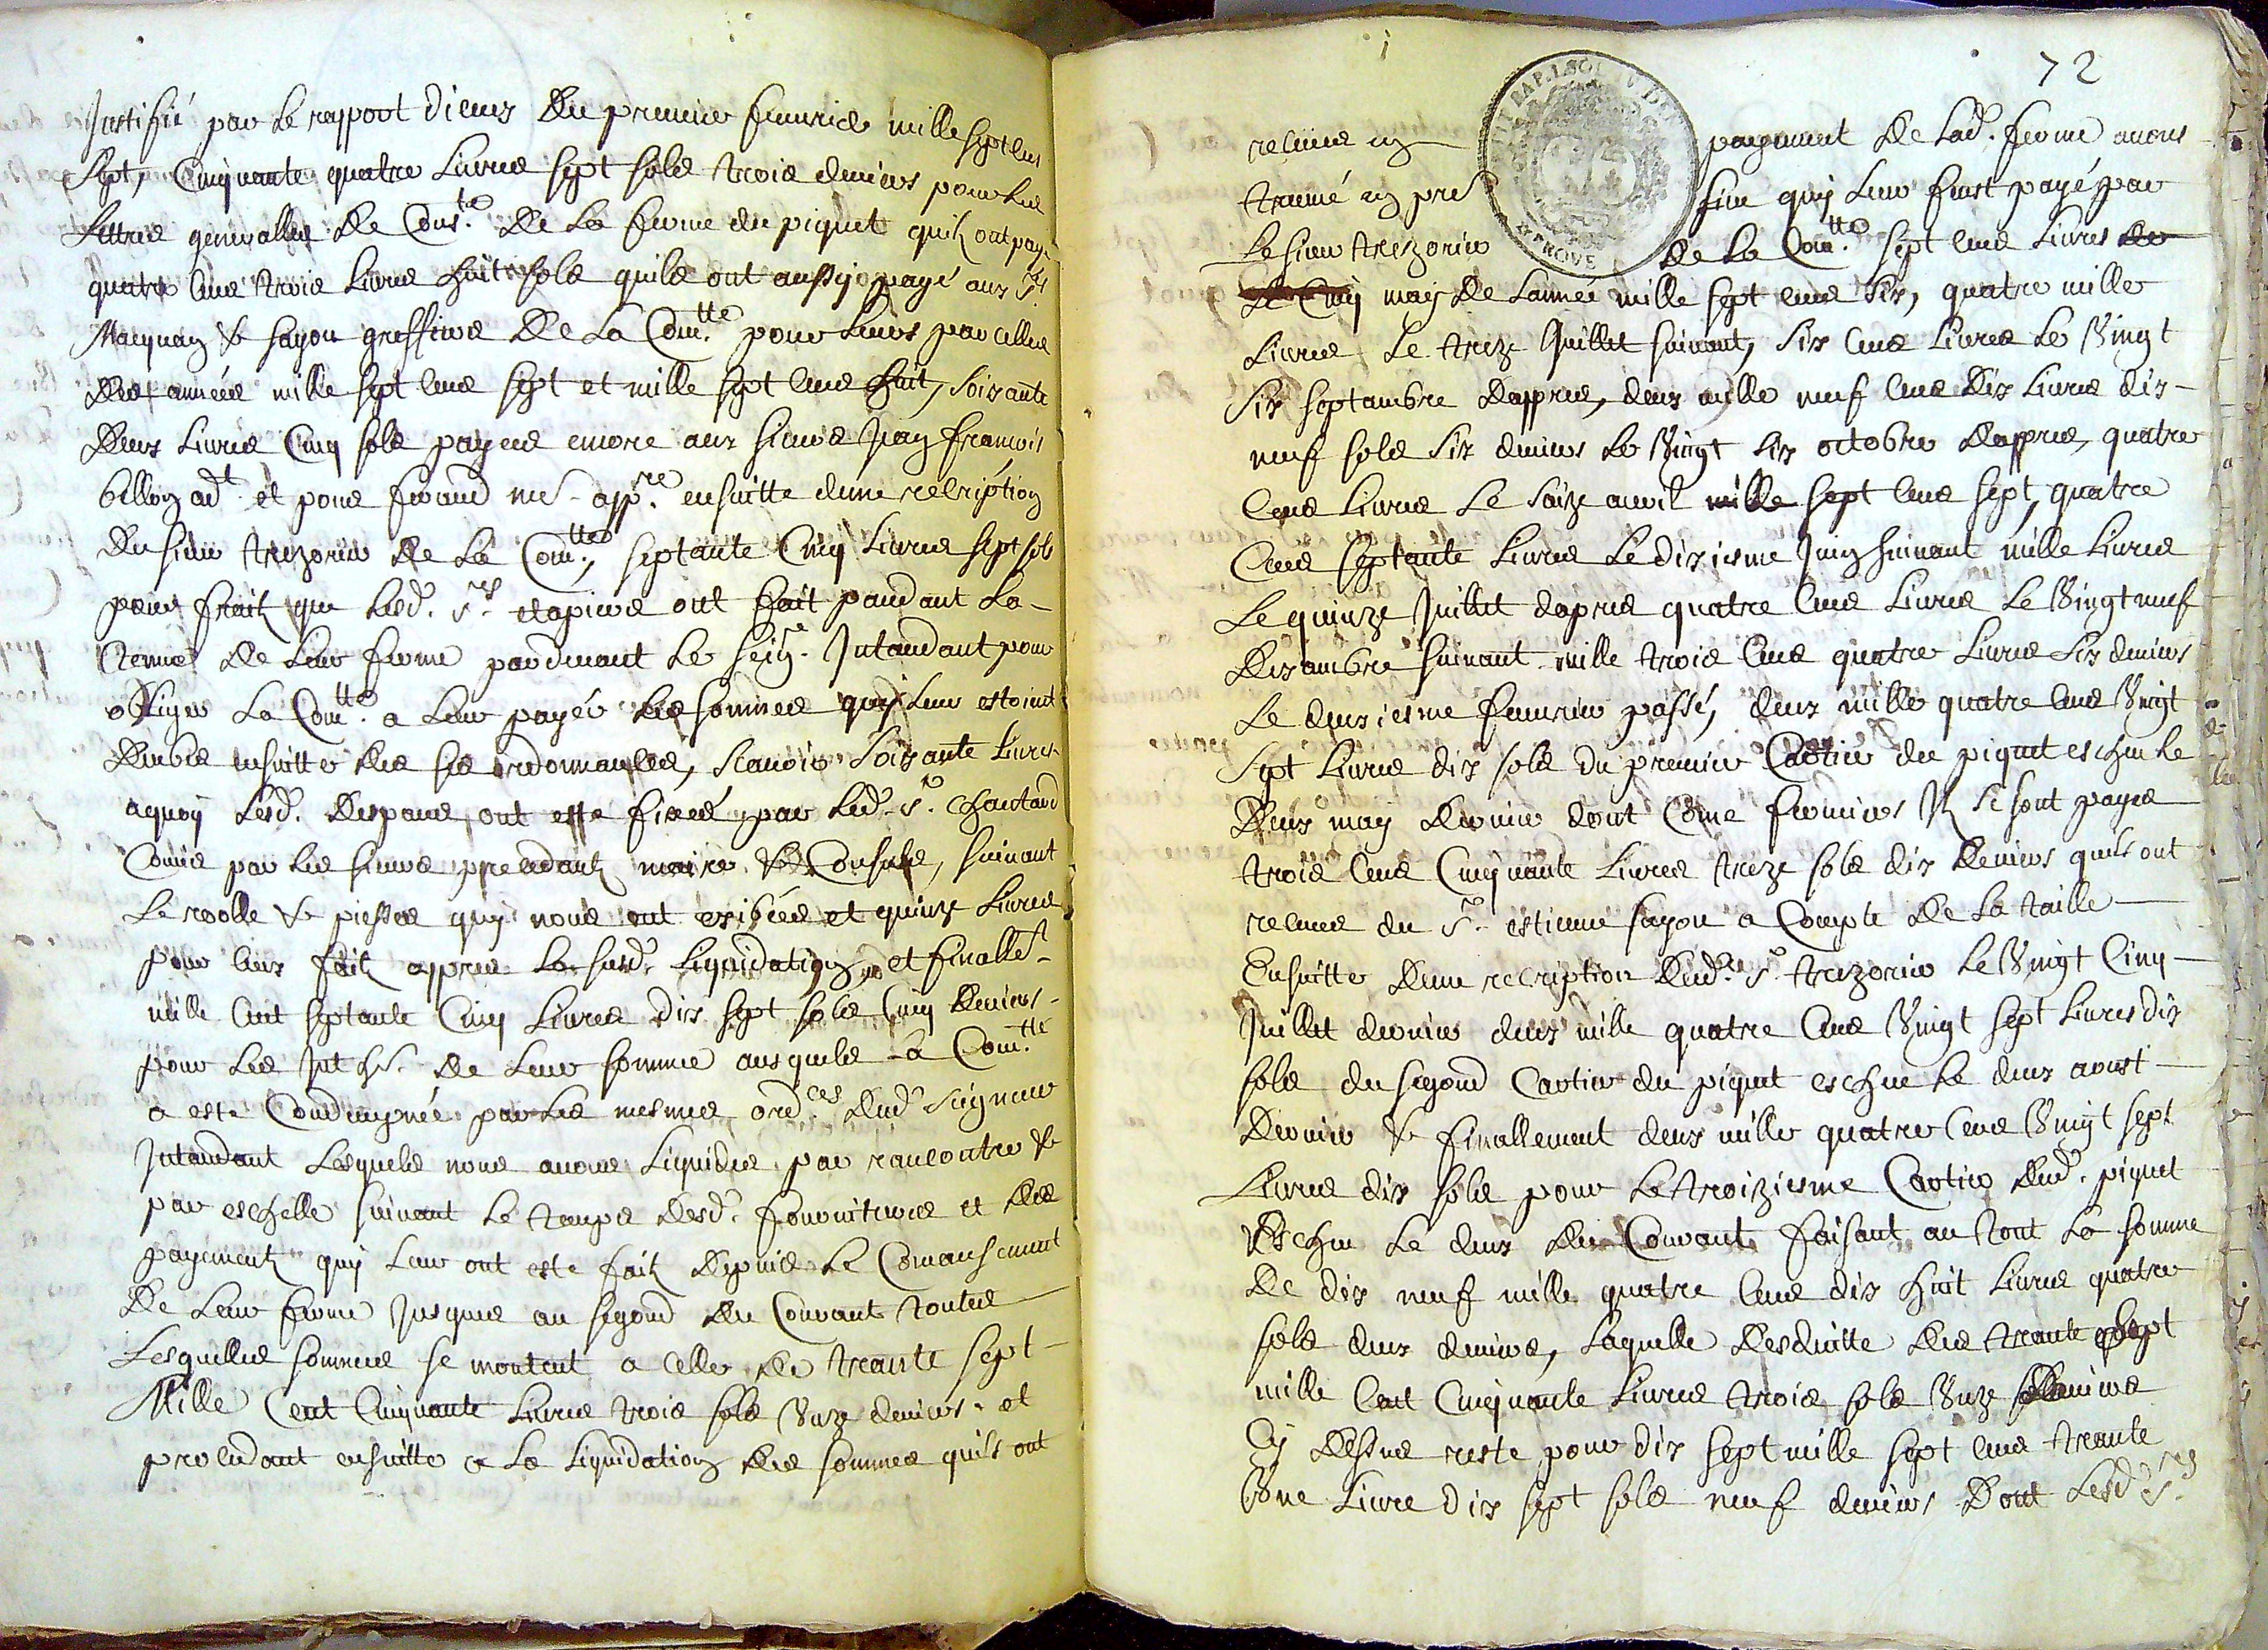 Justifié par le rapport d'iceux du premier feuvrier mille sept cens
sept, Cinquante quatre livres sept sols trois deniers pour les
lettres generalles de Cons.te de la ferme du piquet quilz ont payé
quatre cens trois livres huit sols quils ont aussy payé aux srs
Maqnan & fayon greffiers de la Com.tte pour leurs parcelles
des années mille sept cens sept et mille sept cens huit, soixante
deux livres Cinq sols payées encore aux sieurs Jean francois
billon adt. et pons feraud me. app.re ensuitte dune rescription
du sieur trezorier de la Com.tte, septante Cinq livres sept sols
pour fraix que lesd. srs. etapiers ont fait pandant la
tenue de leur ferme pardevant le seigr. Intandant pour
obliger la Com.tte a leur payer les sommes quy leur estoint
deubes ensuitte des ses ordonnances, scauoir soixante livres
aquoy lesd. despans ont esté fixés par led. sr. chautard
Comis par les sieurs preendants maire & Consuls, suivant
le roolle & piesses quy nous ont exibées et quinze livres
pour ceux faitz appres la susd. liquidation et finallet.
mille cent septante Cinq livres dix sept sols Cinq deniers
pour les Intts. de leur somme ausquels la Com.tté
a esté Condamgnée par les mesmes ord.ces dud. seigneur
Intandant lesquels nous auons liquidés par rancontre &
par eschelle suivant le tamps desd. fournitures et des
payementz quy leur ont esté faitz depuis le Comansement
de leur ferme jusques au segond du Courant toutes
lesquelles sommes se montent a celle de trante sept
Mille Cent Cinquante livres trois sols unze deniers. et
procédant ensuitte a la liquidation des sommes quils ont
72
receües en payement de lad. ferme auons
treuué en pre fiu quy leur feust payé par
le sieur trezorier de la Com.tte sept cens livres
le Cinq may de lannée mille sept cens six, quatre mille
livres le treze Juillet suivant, six cens livres le vingt
six septambre dappres, deux mille neuf cens dix livres dix
neuf sols six deniers le vingt six octobre dappres, quatre
cens livres le saize auril mille sept cens sept, quatre
cens septante livres le dixiesme Juin suivant mille livres
le quinze Juillet dapres quatre cens livres le vingt neuf
dexambre suivant mille trois cens quatre livres six deniers
le deuxiesme feuurier passé, deux mille quatre cens vingt
sept livres dix sols du premier Cartier du piquet escheu le
deux may dernier dont Come fermiers Ilz se sont payés
trois cens Cinquante livres treze sols dix deniers quils ont
receues du sr. estienne fayon a Compte de la taille
Ensuitte dune rescription dud. sr. trezorier le vingt Cinq
Juillet dernier deux mille quatre cens vingt sept livres dix
sols du segond Cartier du piquet escheu le deux aoust
dernier & finallement deux mille quatre cens vingt sept
livres dix sols pour le troiziesme Cartier dud. piquet
Escheu le deux du Courant faisant au tout la somme
de dix neuf mille quatre cens dix huit livres quatre
sols deux deniers, laquelle desduitte des trante sept
mille cent Cinquante livres trois sols unze deniers
Cy dessus reste pour dix sept mille sept cens trante
une livre dix sept sols neuf deniers dont lesd. srs